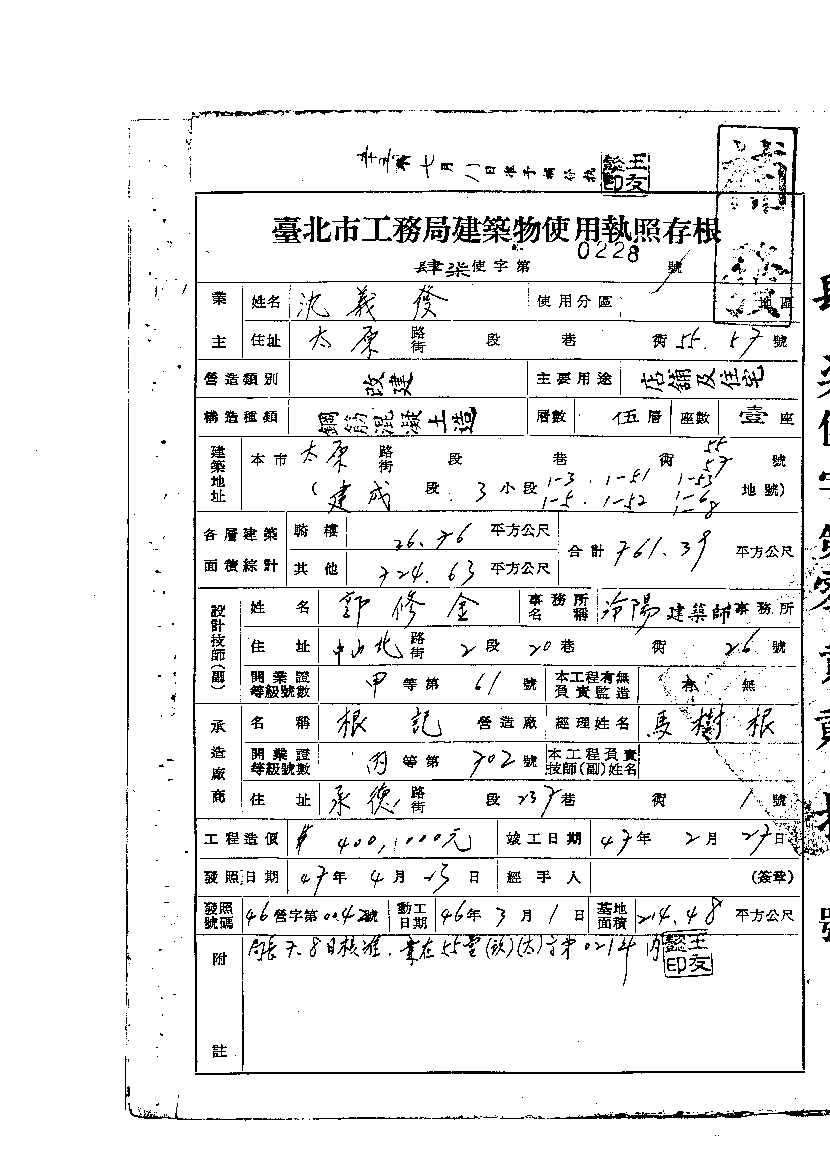 七月八日准予補發執
臺北市工務局建築物使用執照存根
肆柒使字第 0228 號
業主 姓名 沈義發 使用分區 地區
住址 太原 路街 段 巷 衖 55.57 號
營造類別 改建 主要用途 店舖及住宅
構造種類 鋼筋混凝土造 層數 伍層 座數 壹座
建築地址 本市 太原 路街 段 巷 衖 55 57 號
(建成 段 3 小段 1-3 . 1-51 1-53 1-5 . 1-52 1-6 1-8 地號)
各層建築面積綜計 騎樓 26.76 平方公尺 合計 761.39 平方公尺
其他 724.63 平方公尺
設計技師(副) 姓名 郭修金 事務所名稱 冷陽建築師事務所
住址 中山北 路街 2段 20巷 衖 26 號
開業證等級號數 甲等第 61 號 本工程有無負責監造 有 無
承造廠商 名稱 根記 營造廠 經理姓名 馬樹根
開業證等級號數 丙等第 702 號 本工程負責技師(副)姓名
住址 承德 路街 段 237 巷 衖 1 號
工程造價 $ 400,000元 竣工日期 47年 2月 27日
發照日期 47年 4月 23日 經手人 (簽章)
發照號碼 46營字第0042號 動工日期 46年 3月 1日 基地面積 214.48 平方公尺
附註 7.8日核准.案在55 字第0214內
王友懿印